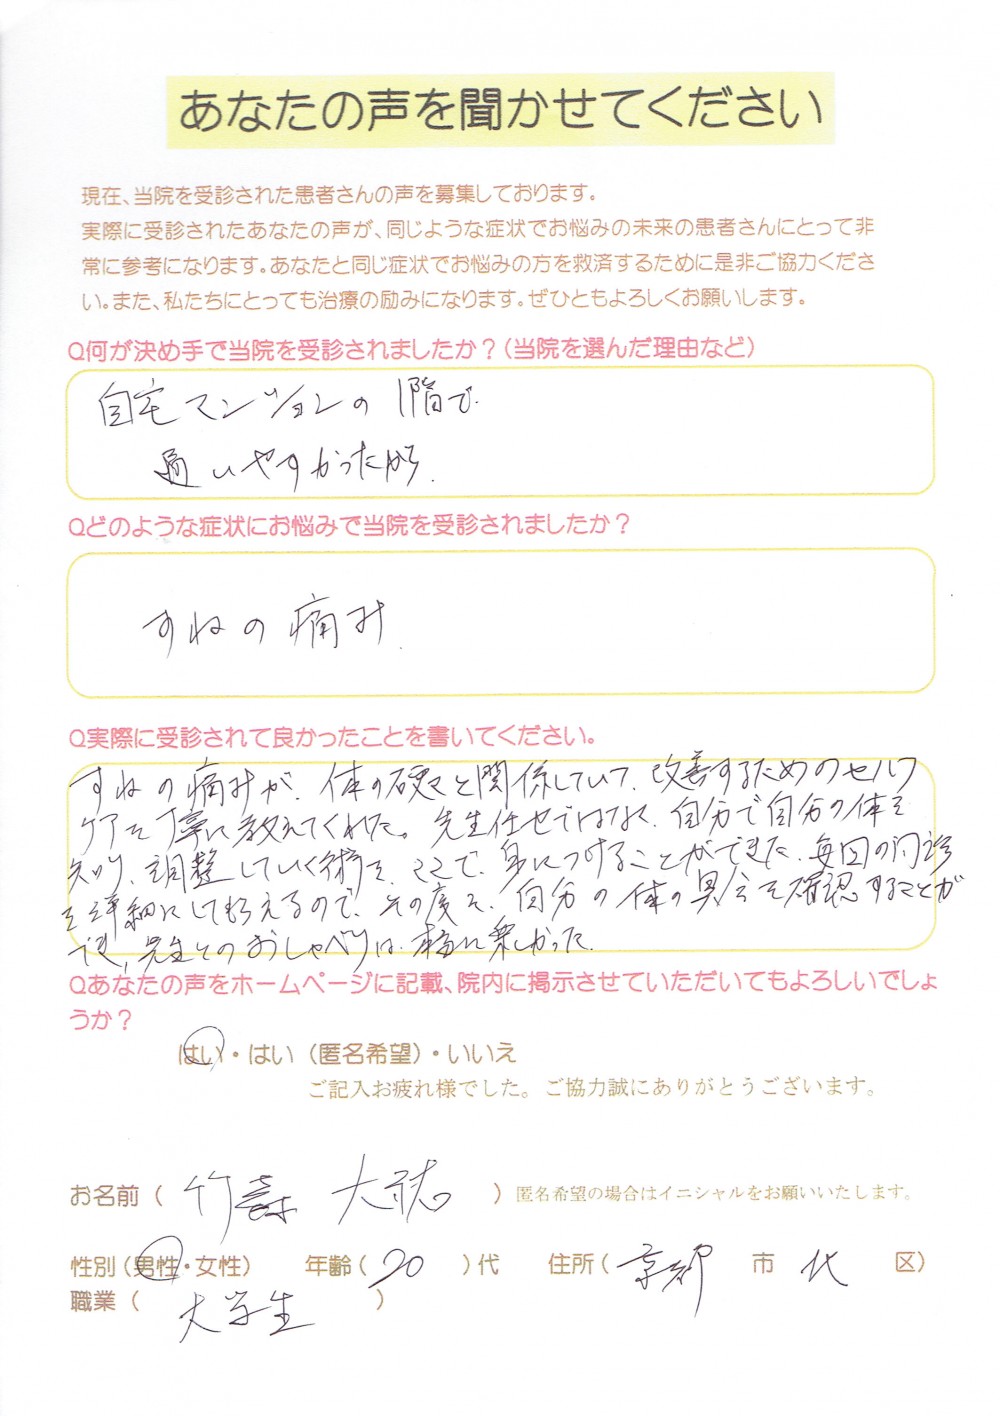 あなたの声を聞かせてください
現在、当院を受診された患者さんの声を募集しております。
実際に受診されたあなたの声が、同じような症状でお悩みの未来の患者さんにとって非
常に参考になります。あなたと同じ症状でお悩みの方を救済するために是非ご協力くださ
い。また、私たちにとっても治療の励みになります。ぜひともよろしくお願いします。
Q何が決め手で当院を受診されましたか？（当院を選んだ理由など）
自宅マンションの1階で
通いやすかったから.
Qどのような症状にお悩みで当院を受診されましたか？
すねの痛み.
Q実際に受診されて良かったことを書いてください。
すねの痛みが、体の硬さと関係していて、改善するためのセルフ
ケアを丁寧に教えてくれた。先生任せではなく、自分で自分の体を
知り、調整していく術を、ここで、身につけることができた。毎回の問診
を詳細にして貰えるので、その度に、自分の体の具合を確認することが
でき、先生とのおしゃべりは、楽しかった.
Qあなたの声をホームページに記載、院内に掲示させていただいてもよろしいでしょ
うか？
はい・はい（匿名希望）・いいえ
ご記入お疲れ様でした。ご協力誠にありがとうございます。
お名前（ 竹 大 ）匿名希望の場合はイニシャルをお願いいたします。
性別（男性・女性） 年齢（ 20 ）代 住所（ 京都 市 北 区）
職業（ 大学生 ）